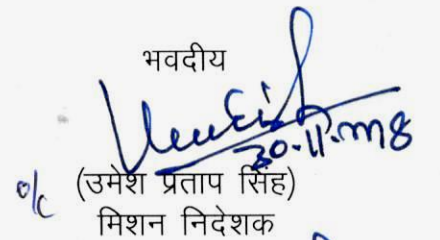 भवदीय
30.11.2018
o/c (उमेश प्रताप सिंह)
मिशन निदेशक